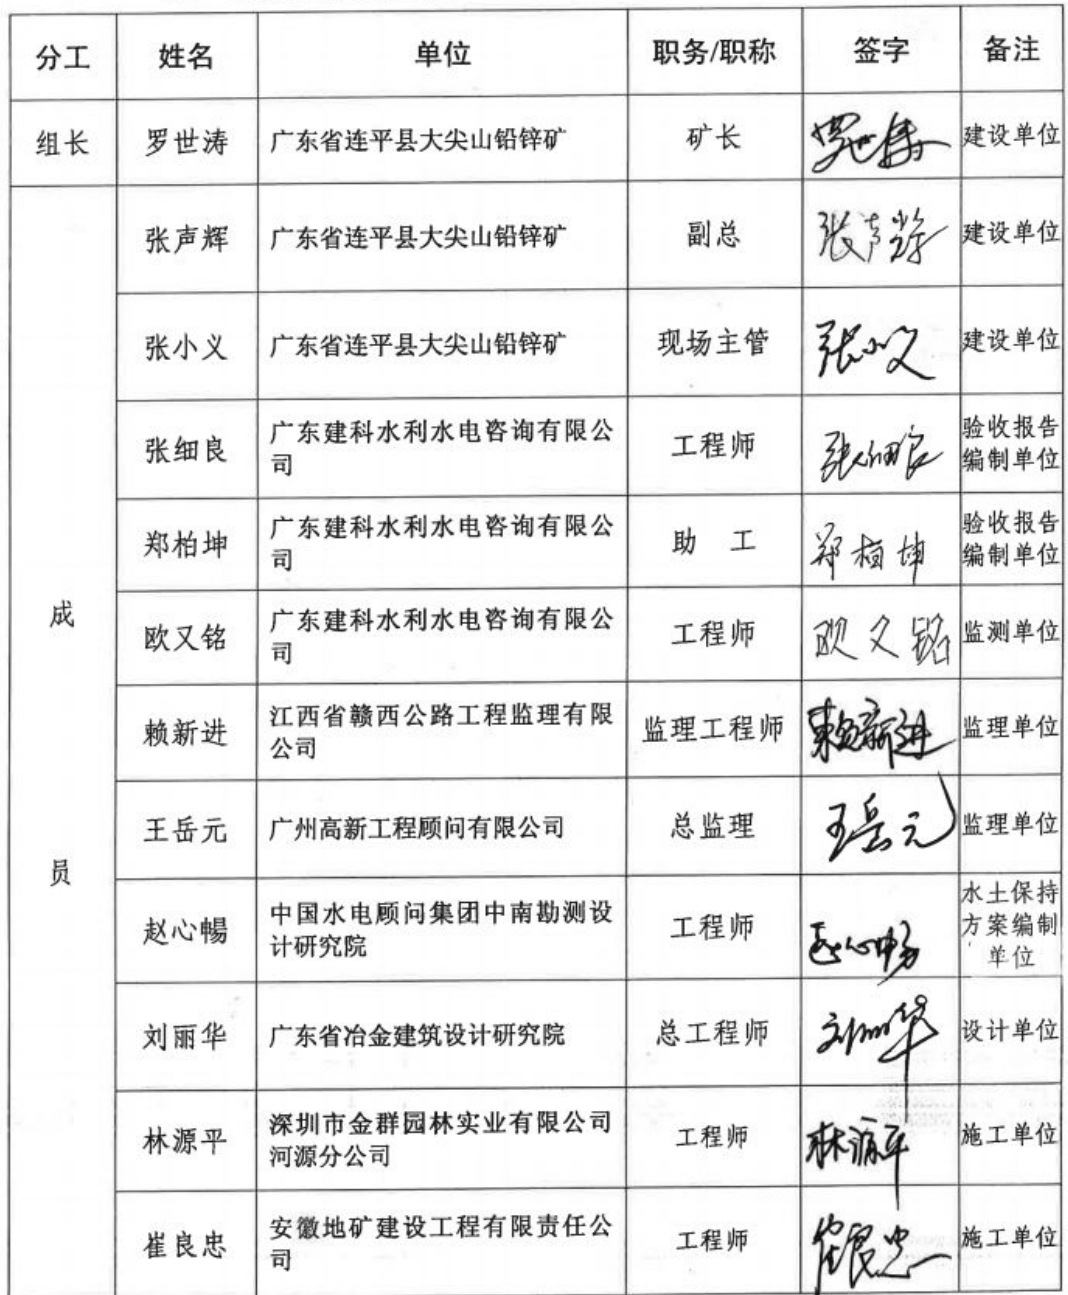 分工 姓名 单位 职务/职称 签字 备注
组长 罗世涛 广东省连平县大尖山铅锌矿 矿长 罗世涛 建设单位
张声辉 广东省连平县大尖山铅锌矿 副总 张声辉 建设单位
张小义 广东省连平县大尖山铅锌矿 现场主管 张小义 建设单位
张细良 广东建科水利水电咨询有限公 工程师 张细良 验收报告
司 编制单位
郑柏坤 广东建科水利水电咨询有限公 助 工 郑柏坤 验收报告
司 编制单位
成
欧又铭 广东建科水利水电咨询有限公 工程师 欧又铭 监测单位
司
赖新进 江西省赣西公路工程监理有限 监理工程师 赖新进 监理单位
公司
王岳元 广州高新工程顾问有限公司 总监理 王岳元 监理单位
员
赵心暢 中国水电顾问集团中南勘测设 工程师 赵心畅 水土保持
计研究院 方案编制
单位
刘丽华 广东省冶金建筑设计研究院 总工程师 刘丽华 设计单位
林源平 深圳市金群园林实业有限公司 工程师 林源平 施工单位
河源分公司
崔良忠 安徽地矿建设工程有限责任公 工程师 崔良忠 施工单位
司